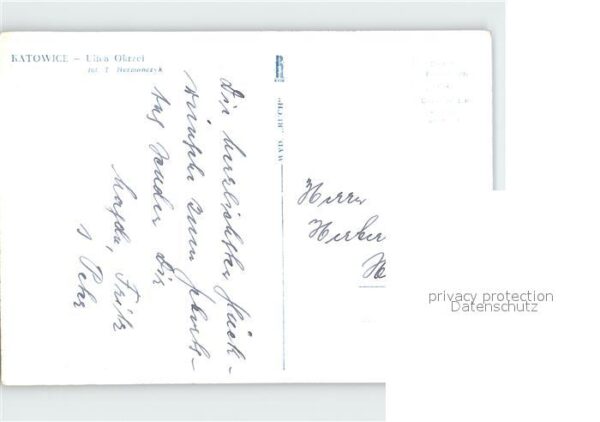 KATOWICE – Ulica Okrzei
fot. T. Hermańczyk
Die herzlichsten Glück-
wünsche zum Geburts-
tag senden Dir
Magda, Fritz
& Peter
WYD. „RUCH"
Herrn
Herber
H
privacy protection
Datenschutz